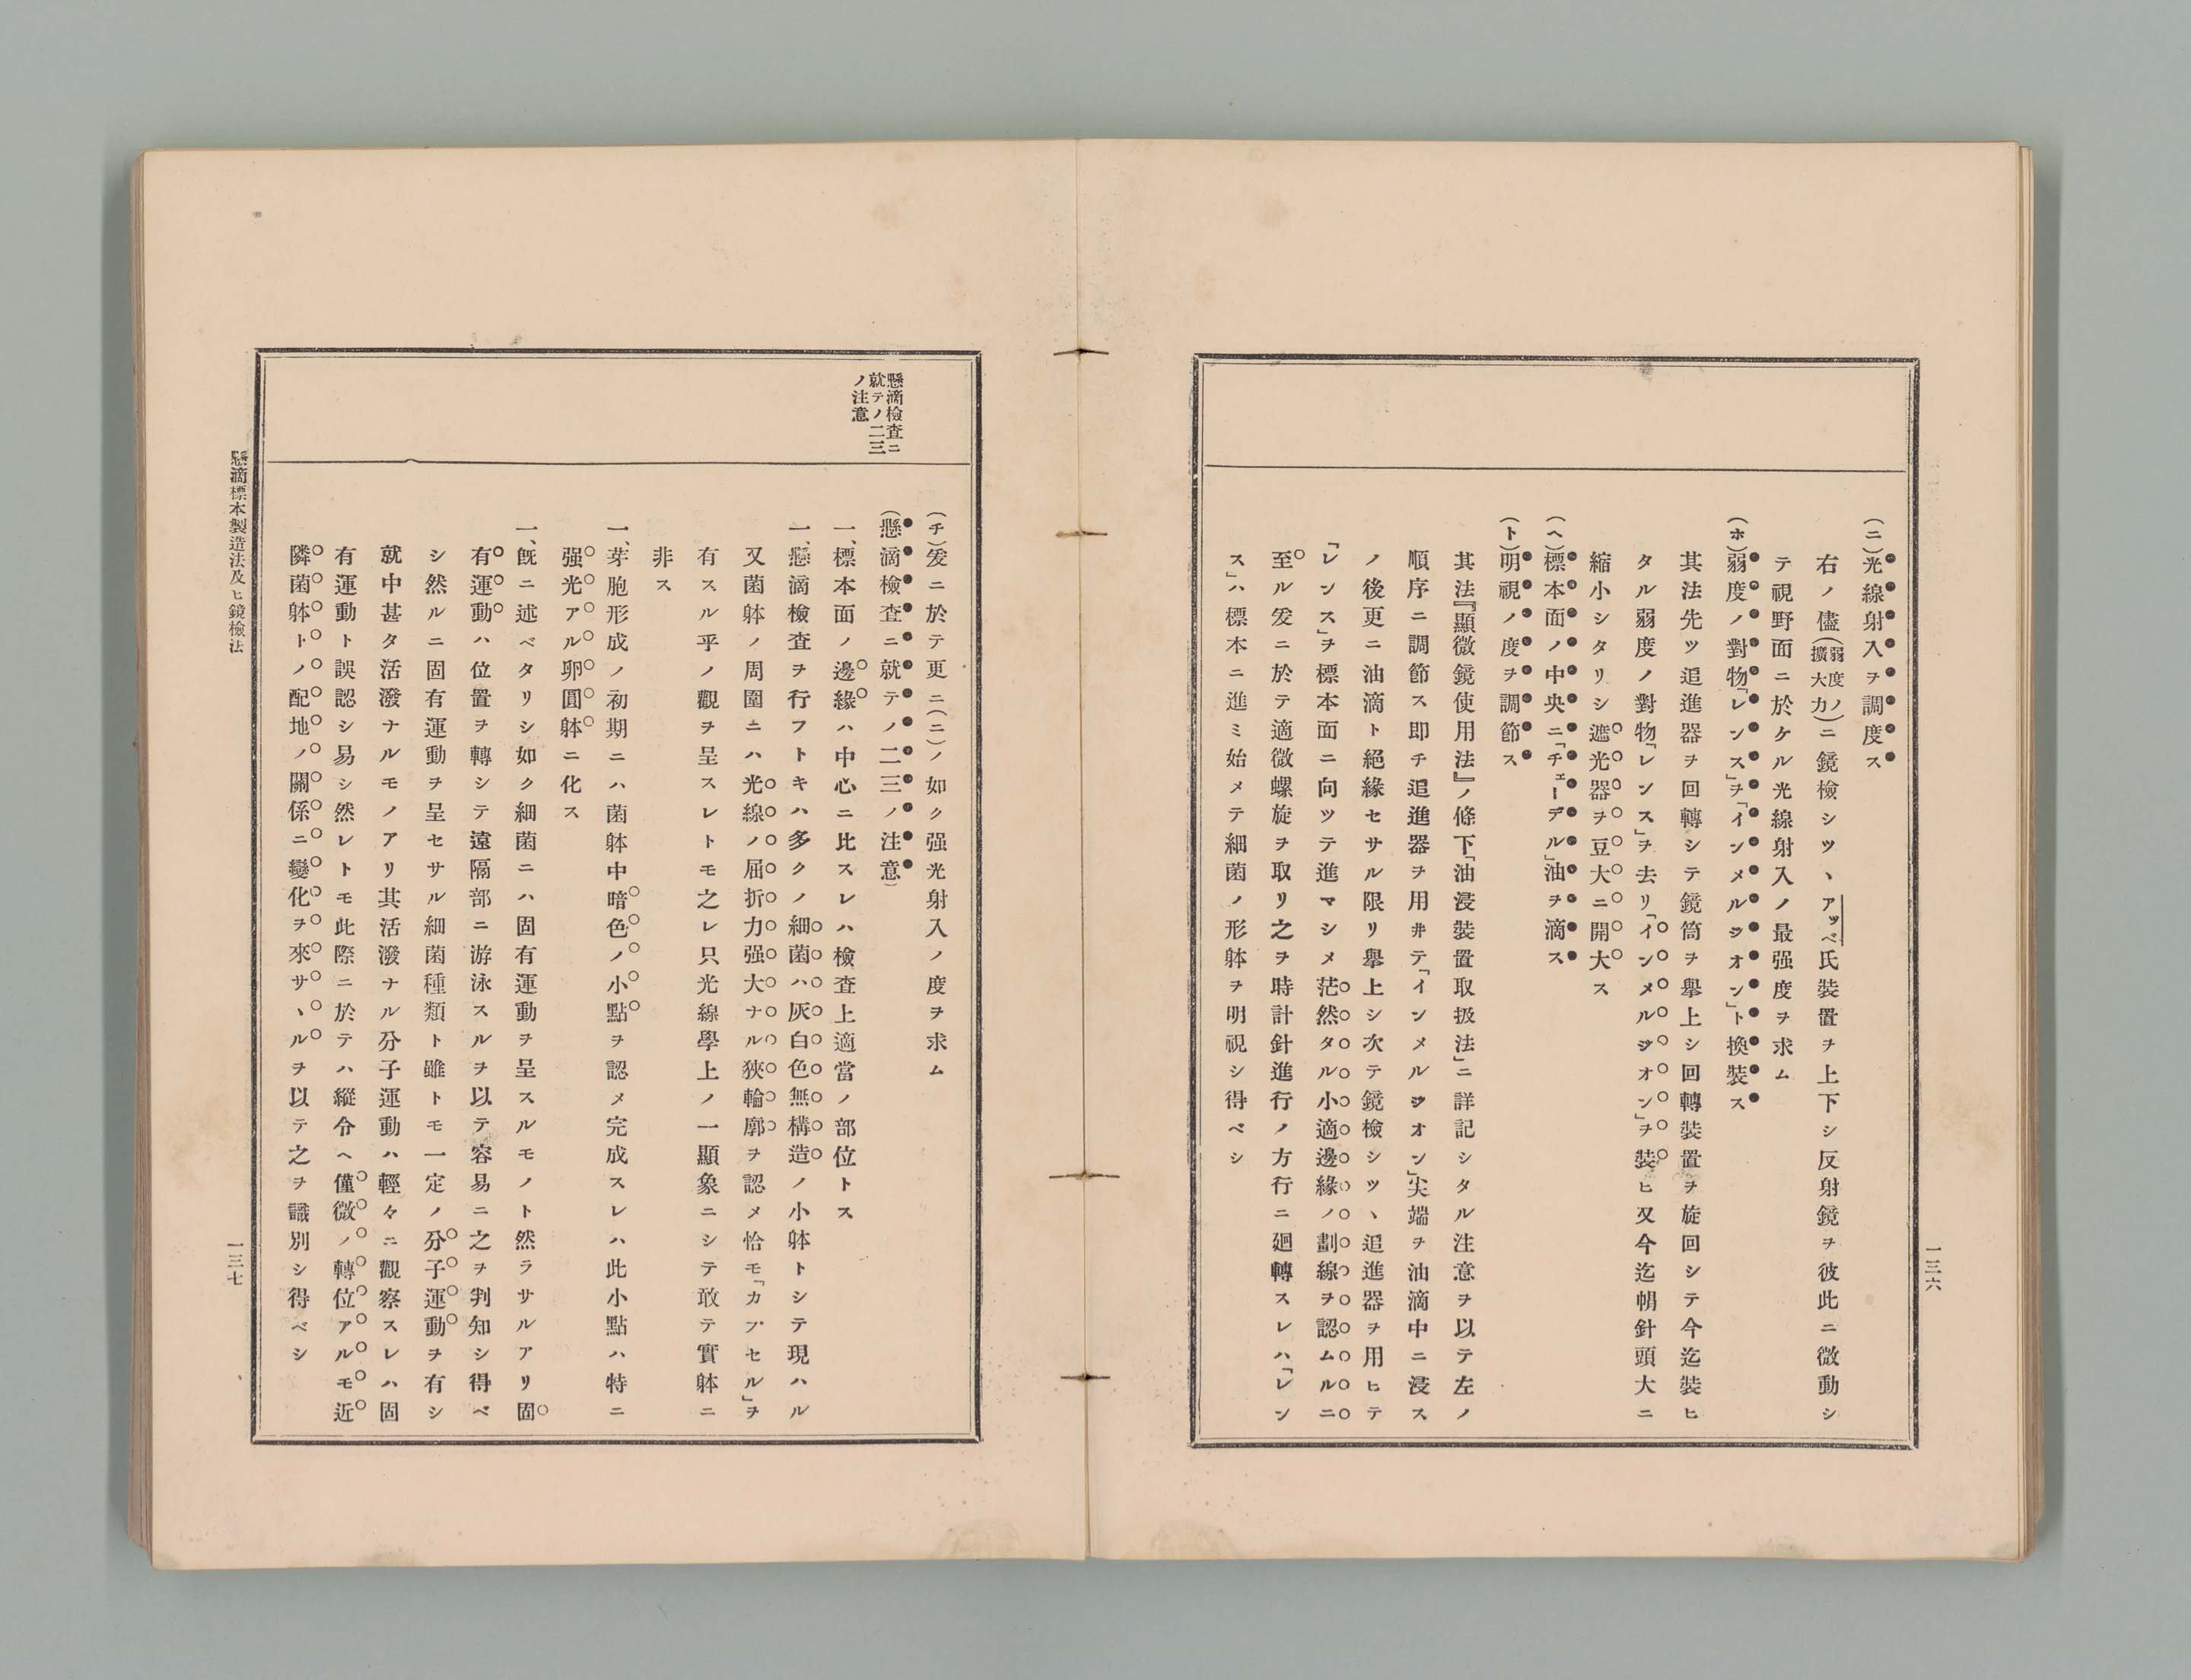 (ニ)光線射入ヲ調度ス
右ノ儘(弱度ノ擴大力)ニ鏡檢シツヽアッベ氏裝置ヲ上下シ反射鏡ヲ彼此ニ微動シ
テ視野面ニ於ケル光線射入ノ最强度ヲ求ム
(ホ)弱度ノ對物「レンス」ヲ「インメルジオン」ト換裝ス
其法先ツ追進器ヲ回轉シテ鏡筒ヲ擧上シ回轉裝置ヲ旋回シテ今迄裝ヒ
タル弱度ノ對物「レンス」ヲ去リ「インメルジオン」ヲ裝ヒ又今迄帽針頭大ニ
縮小シタリシ遮光器ヲ豆大ニ開大ス
(ヘ)標本面ノ中央ニ「チェーデル」油ヲ滴ス
(ト)明視ノ度ヲ調節ス
其法『顯微鏡使用法』ノ條下「油浸裝置取扱法」ニ詳記シタル注意ヲ以テ左ノ
順序ニ調節ス即チ追進器ヲ用井テ「インメルジオン」尖端ヲ油滴中ニ浸ス
ノ後更ニ油滴ト絕緣セサル限リ擧上シ次テ鏡檢シツヽ追進器ヲ用ヒテ
「レンス」ヲ標本面ニ向ツテ進マシメ茫然タル小適邊緣ノ劃線ヲ認ムルニ
至ル爰ニ於テ適微螺旋ヲ取リ之ヲ時計針進行ノ方行ニ廻轉スレハ「レン
ス」ハ標本ニ進ミ始メテ細菌ノ形躰ヲ明視シ得ベシ
一三六
懸滴檢查ニ
就テノ二三
ノ注意
(チ)爰ニ於テ更ニ(ニ)ノ如ク强光射入ノ度ヲ求ム
(懸滴檢查ニ就テノ二三ノ注意)
一、標本面ノ邊緣ハ中心ニ比スレハ檢查上適當ノ部位トス
一、懸滴檢查ヲ行フトキハ多クノ細菌ハ灰白色無構造ノ小躰トシテ現ハル
又菌躰ノ周圍ニハ光線ノ屈折力强大ナル狹輪廓ヲ認メ恰モ「カプセル」ヲ
有スル乎ノ觀ヲ呈スレトモ之レ只光線學上ノ一顯象ニシテ敢テ實躰ニ
非ス
一、芽胞形成ノ初期ニハ菌躰中暗色ノ小點ヲ認メ完成スレハ此小點ハ特ニ
强光アル卵圓躰ニ化ス
一、旣ニ述ベタリシ如ク細菌ニハ固有運動ヲ呈スルモノト然ラサルアリ固
有運動ハ位置ヲ轉シテ遠隔部ニ游泳スルヲ以テ容易ニ之ヲ判知シ得ベ
シ然ルニ固有運動ヲ呈セサル細菌種類ト雖トモ一定ノ分子運動ヲ有シ
就中甚タ活潑ナルモノアリ其活潑ナル分子運動ハ輕々ニ觀察スレハ固
有運動ト誤認シ易シ然レトモ此際ニ於テハ縱令ヘ僅微ノ轉位アルモ近
隣菌躰トノ配地ノ關係ニ變化ヲ來サヽルヲ以テ之ヲ識別シ得ベシ
懸滴標本製造法及ヒ鏡檢法
一三七